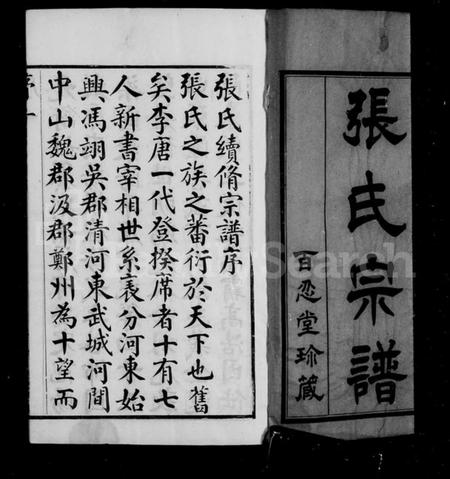 張氏宗譜
百忍堂珍藏
張氏續脩宗譜序
張氏之族之蕃衍於天下也舊
矣李唐一代登揆席者十有七
人新書宰相世系表分河東始
興馮翊吳郡清河東武城河間
中山魏郡汲郡鄭州為十望而
序一